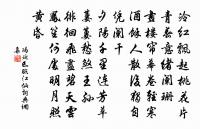 冷紅飄起桃花片
青春意緒闌珊
畫樓簾幕卷輕寒
酒餘人散後獨自
倚闌干
夕陽千里連芳草
萋萋愁煞王孫
徘徊飛盡碧天雲
鳳笙何處明月照
黃昏
馮延巳臨江仙詞典網